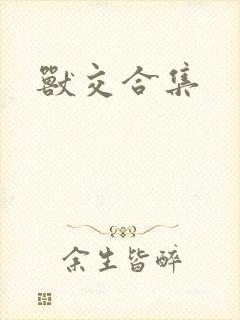 獸交合集
余生皆醉